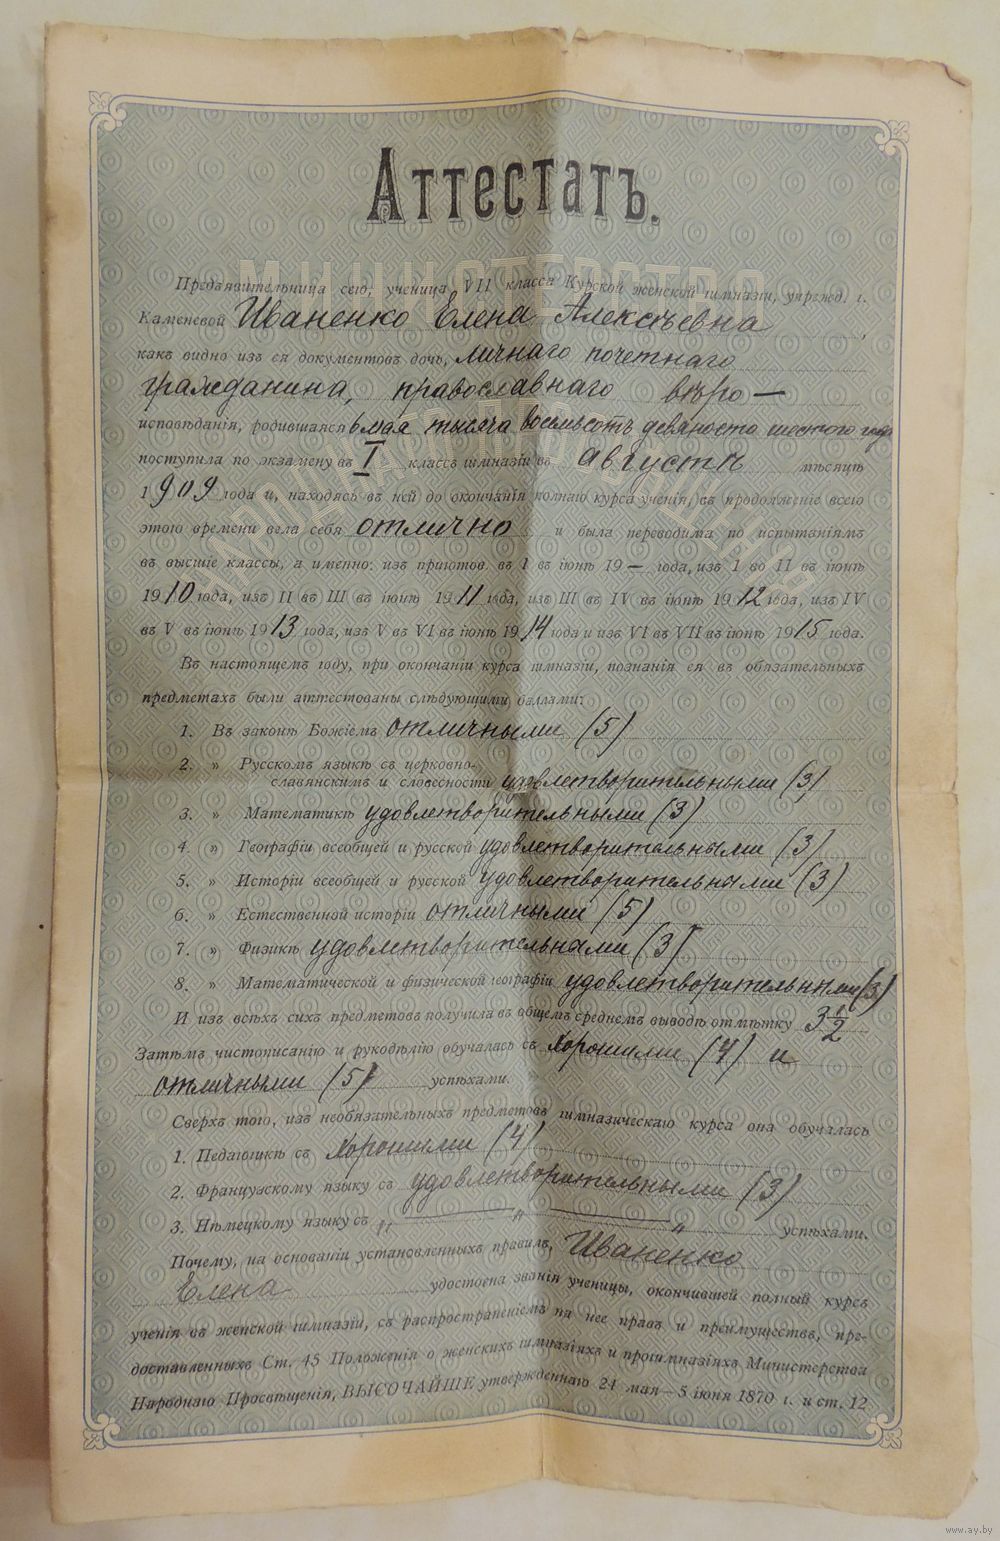 Аттестатъ.
МИНИСТЕРСТВО
НАРОДНАГО ПРОСВѢЩЕНІЯ
Предъявительница сего, ученица VII класса Курской женской гимназіи, учрежд. г.
Каменевой Иваненко Елена Алексѣевна,
какъ видно изъ ея документовъ дочь, личнаго почетнаго
гражданина, православнаго вѣро—
исповѣданія, родившаяся 6 мая тысяча восемьсотъ девяносто шестого года
поступила по экзамену въ I классъ гимназіи въ августѣ мѣсяцѣ
1909 года и, находясь въ ней до окончанія полнаго курса ученія, въ продолженіе всего
этого времени вела себя отлично и была переводима по испытаніямъ
въ высшіе классы, а именно: изъ пригот. въ I въ іюнѣ 19— года, изъ I во II въ іюнѣ
1910 года, изъ II въ III въ іюнѣ 1911 года, изъ III въ IV въ іюнѣ 1912 года, изъ IV
въ V въ іюнѣ 1913 года, изъ V въ VI въ іюнѣ 1914 года и изъ VI въ VII въ іюнѣ 1915 года.
Въ настоящемъ году, при окончаніи курса гимназіи, познанія ея въ обязательныхъ
предметахъ были аттестованы слѣдующими баллами:
1. Въ законѣ Божіемъ отличными (5)
2. » Русскомъ языкѣ съ церковно-
славянскимъ и словесности удовлетворительными (3)
3. » Математикѣ удовлетворительными (3)
4. » Географіи всеобщей и русской удовлетворительными (3)
5. » Исторіи всеобщей и русской удовлетворительными (3)
6. » Естественной исторіи отличными (5)
7. » Физикѣ удовлетворительными (3)
8. » Математической и физической географіи удовлетворительными (3)
И изъ всѣхъ сихъ предметовъ получила въ общемъ среднемъ выводѣ отмѣтку 3 1/2
Затѣмъ чистописанію и рукодѣлію обучалась съ хорошими (4) и
отличными (5) успѣхами.
Сверхъ того, изъ необязательныхъ предметовъ гимназическаго курса она обучалась
1. Педагогикѣ съ хорошими (4)
2. Французскому языку съ удовлетворительными (3)
3. Нѣмецкому языку съ " — " — " успѣхами.
Почему, на основаніи установленныхъ правилъ, Иваненко
Елена удостоена званія ученицы, окончившей полный курсъ
ученія въ женской гимназіи, съ распространеніемъ на нее правъ и преимуществъ, пре-
доставленныхъ Ст. 45 Положенія о женскихъ гимназіяхъ и прогимназіяхъ Министерства
Народнаго Просвѣщенія, ВЫСОЧАЙШЕ утвержденнаго 24 мая—5 іюня 1870 г. и ст. 12
www.ay.by